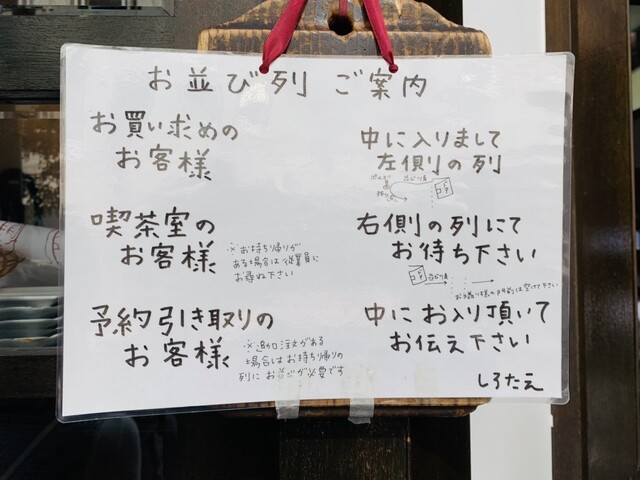 お並び列 ご案内
お買い求めの
お客様
中に入りまして
左側の列
喫茶室の
お客様
※お持ち帰りが
ある場合は従業員に
お尋ね下さい
右側の列にて
お待ち下さい
予約引き取りの
お客様
※追加注文がある
場合はお持ち帰りの
列にお並びが必要です
中にお入り頂いて
お伝え下さい
しろたえ